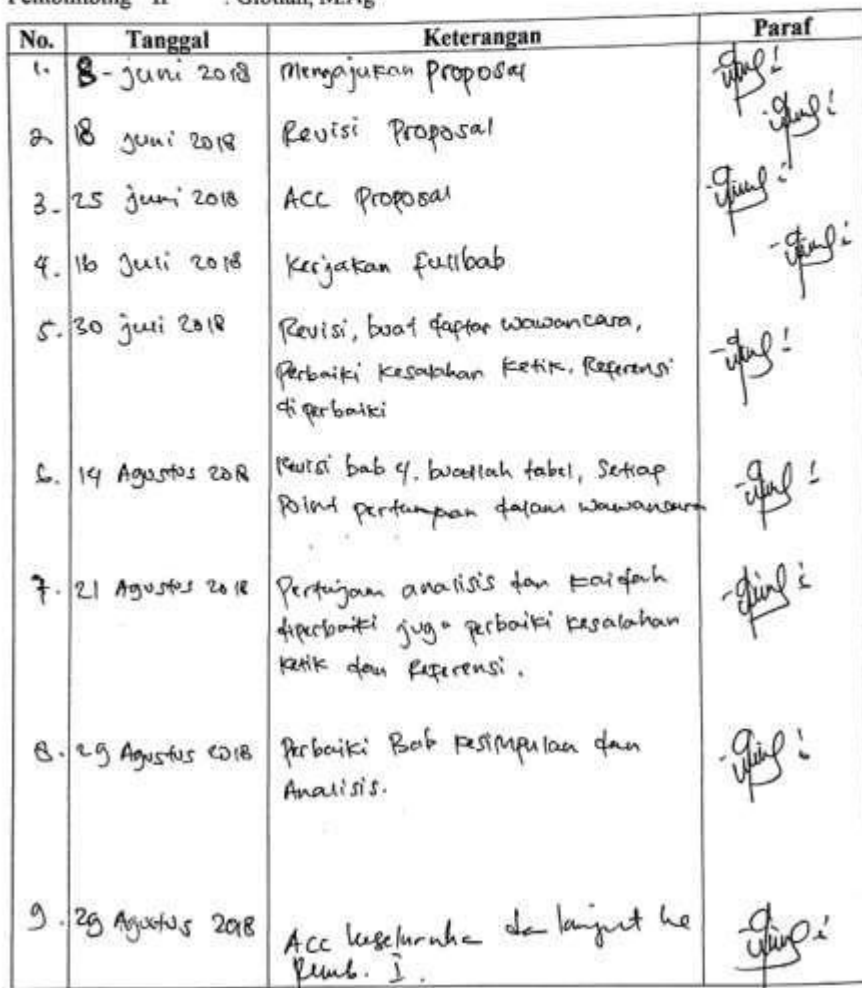 Pembimbing II : Gibtiah, M.Ag
No. Tanggal Keterangan Paraf
1. 8 - juni 2018 Mengajukan Proposal
2. 18 juni 2018 Revisi Proposal
3. 25 juni 2018 ACC Proposal
4. 16 Juli 2018 Kerjakan fullbab
5. 30 juli 2018 Revisi, buat daftar wawancara,
Perbaiki Kesalahan Ketik, Referensi
diperbaiki
6. 14 Agustus 2018 Revisi bab 4. buatlah tabel, Setiap
Point dalam wawancara
7. 21 Agustus 2018 Pertajam analisis dan kaidah
diperbaiki juga perbaiki kesalahan
ketik dan Referensi.
8. 29 Agustus 2018 Perbaiki Bab Kesimpulan dan
Analisis.
9. 29 Agustus 2018 ACC keseluruhan dan lanjut ke
Pemb. I.